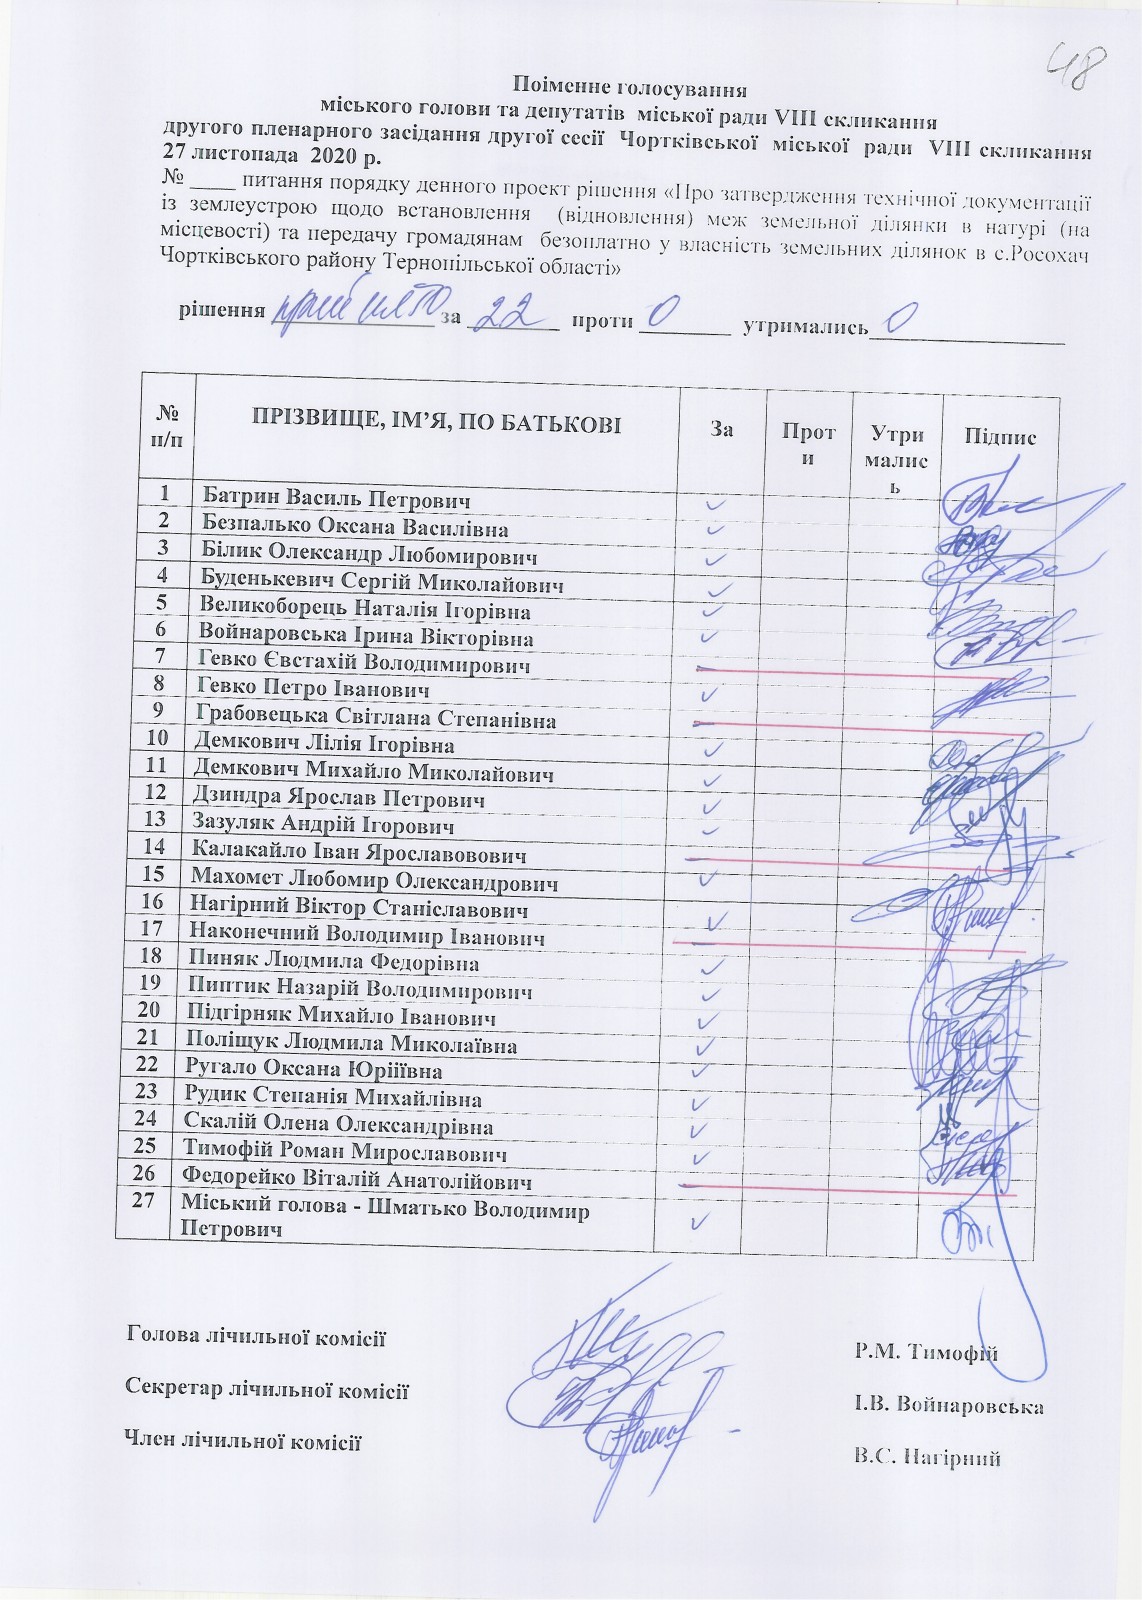 48
Поіменне голосування
міського голови та депутатів міської ради VIII скликання
другого пленарного засідання другої сесії Чортківської міської ради VIII скликання
27 листопада 2020 р.
№ ____ питання порядку денного проект рішення «Про затвердження технічної документації
із землеустрою щодо встановлення (відновлення) меж земельної ділянки в натурі (на
місцевості) та передачу громадянам безоплатно у власність земельних ділянок в с.Росохач
Чортківського району Тернопільської області»
рішення прийнято за 22 проти 0 утримались 0
№ п/п ПРІЗВИЩЕ, ІМ’Я, ПО БАТЬКОВІ За Проти Утрималась Підпис
1 Батрин Василь Петрович ✓
2 Безпалько Оксана Василівна ✓
3 Білик Олександр Любомирович ✓
4 Буденькевич Сергій Миколайович ✓
5 Великоборець Наталія Ігорівна ✓
6 Войнаровська Ірина Вікторівна ✓
7 Гевко Євстахій Володимирович
8 Гевко Петро Іванович ✓
9 Грабовецька Світлана Степанівна
10 Демкович Лілія Ігорівна ✓
11 Демкович Михайло Миколайович ✓
12 Дзиндра Ярослав Петрович ✓
13 Зазуляк Андрій Ігорович ✓
14 Калакайло Іван Ярославовович
15 Махомет Любомир Олександрович ✓
16 Нагірний Віктор Станіславович ✓
17 Наконечний Володимир Іванович
18 Пиняк Людмила Федорівна ✓
19 Пиптик Назарій Володимирович ✓
20 Підгірняк Михайло Іванович ✓
21 Поліщук Людмила Миколаївна ✓
22 Ругало Оксана Юріїївна ✓
23 Рудик Степанія Михайлівна ✓
24 Скалій Олена Олександрівна ✓
25 Тимофій Роман Мирославович ✓
26 Федорейко Віталій Анатолійович
27 Міський голова - Шматько Володимир
Петрович ✓
Голова лічильної комісії Р.М. Тимофій
Секретар лічильної комісії І.В. Войнаровська
Член лічильної комісії В.С. Нагірний